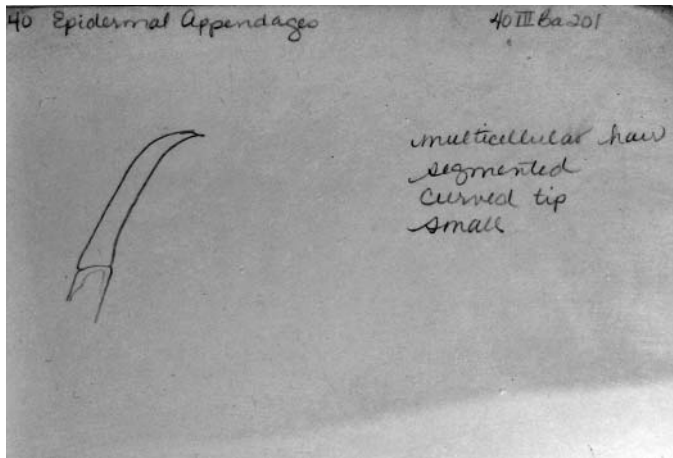 40 Epidermal Appendages
40 III Ba 201
multicellular hair
segmented
curved tip
small